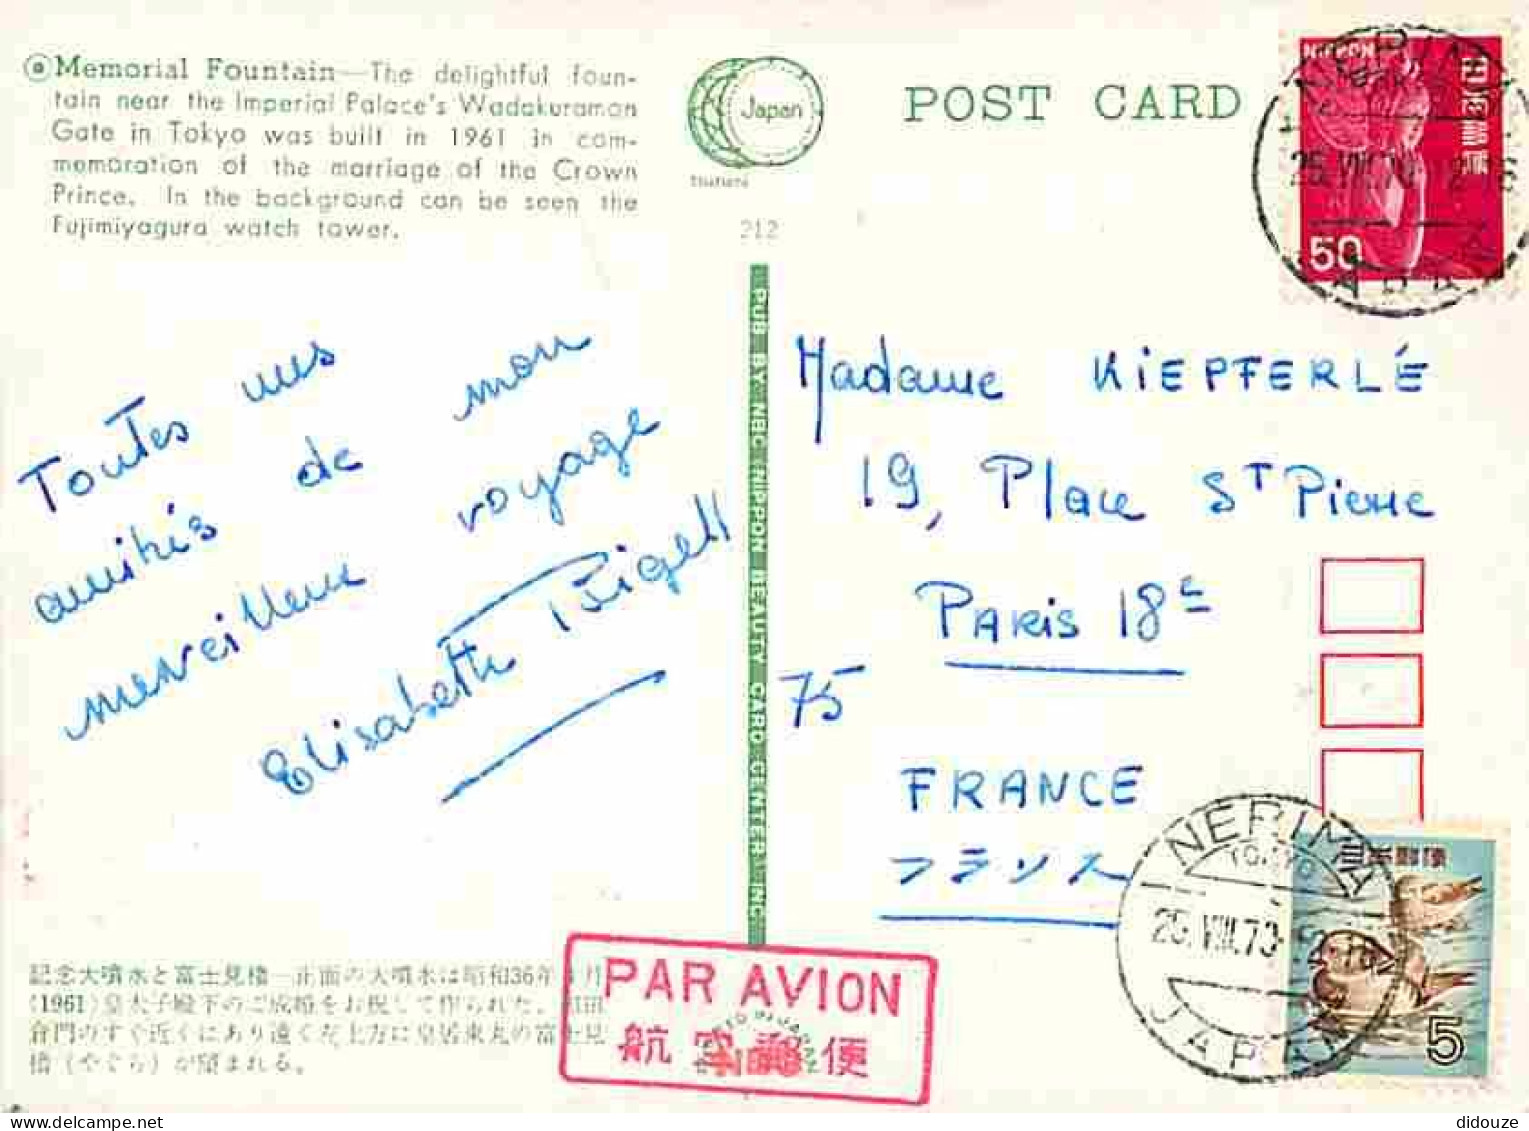 Memorial Fountain—The delightful foun-
tain near the Imperial Palace's Wadakuramon
Gate in Tokyo was built in 1961 in com-
memoration of the marriage of the Crown
Prince. In the background can be seen the
Fujimiyagura watch tower.
Japan
212
POST CARD
NIPPON
日本郵便
50
NERIMA
25.VIII.70
JAPAN
PUB BY NBC NIPPON BEAUTY CARD CENTER INC
Toutes mes
amitiés de mon
merveilleux voyage
Elisabeth
Madame KIEPFERLÉ
19, Place St Pierre
PARIS 18e
75
FRANCE
フランス
記念大噴水と富士見櫓—正面の大噴水は昭和36年 月
(1961)皇太子殿下のご成婚をお祝して作られた。 田
倉門のすぐ近くにあり遠く左上方に皇居東丸の富士見
櫓(やぐら)が望まれる。
PAR AVION
航空郵便
NERIMA
TOKYO
25.VIII.70
JAPAN
日本郵便
5
didouze